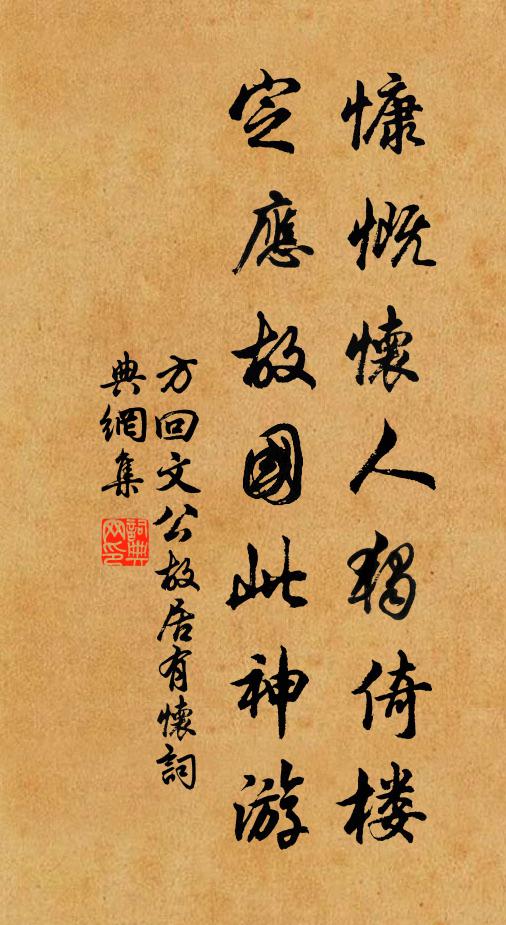 慷慨懷人獨倚楼
定應故國此神游
方回文公故居有懷詞
典網集
詞典网印